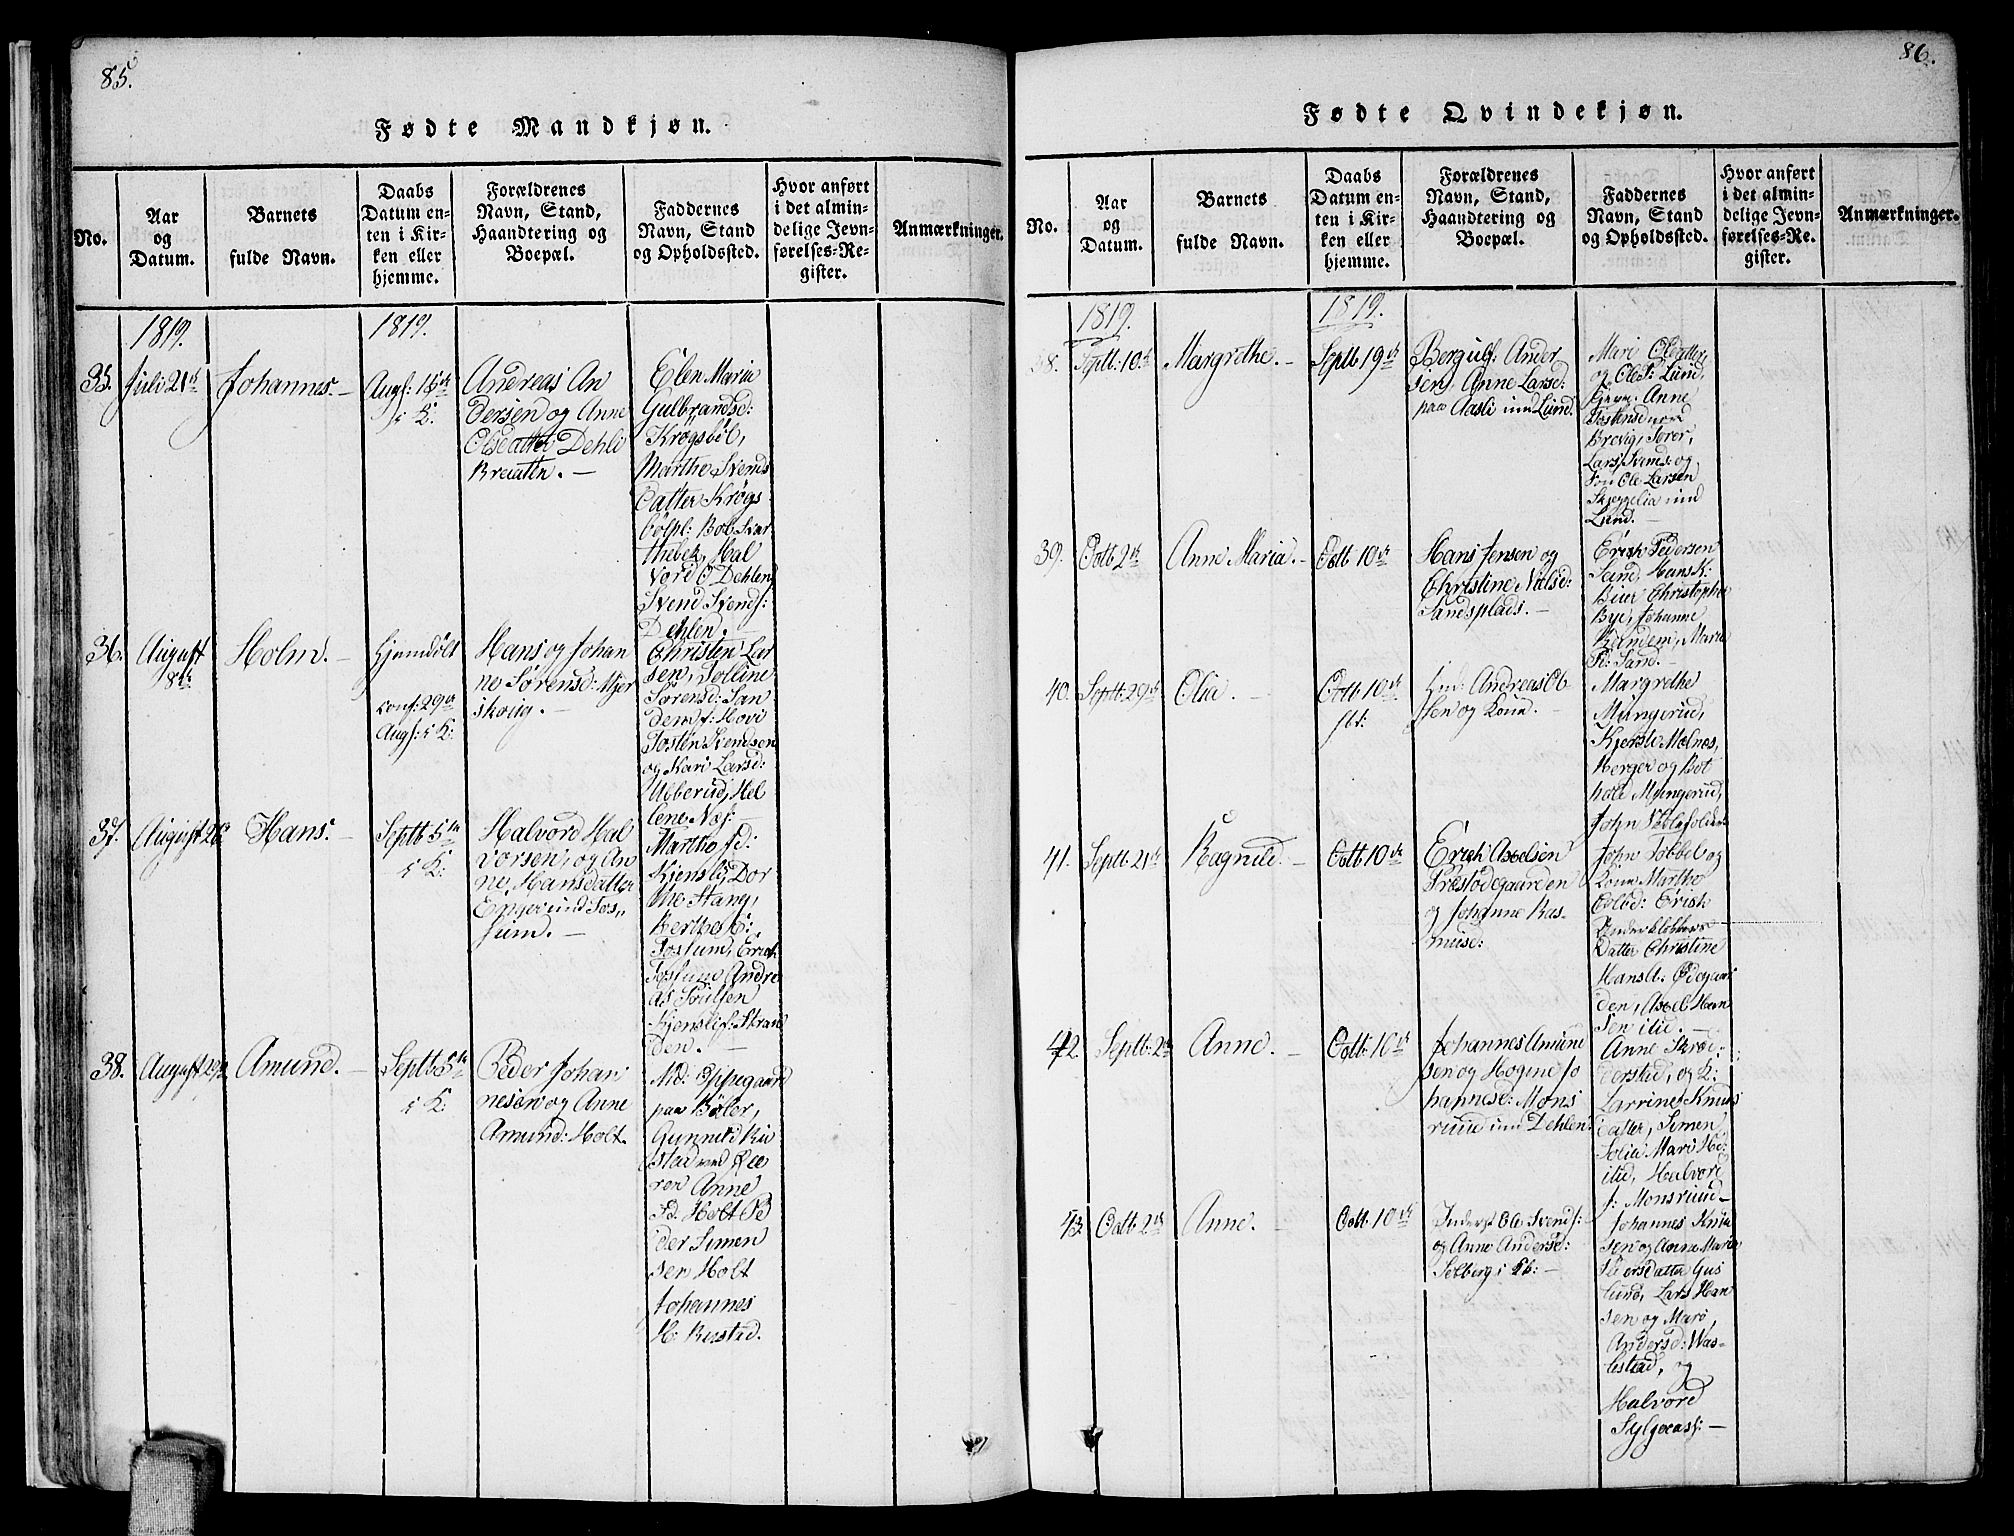 85.
Fødte Mandkjøn.
No.
Aar
og
Datum.
Barnets
fulde Navn.
Daabs
Datum en-
ten i Kir-
ken eller
hjemme.
Forældrenes
Navn, Stand,
Haandtering og
Boepæl.
Faddernes
Navn, Stand
og Opholdssted.
Hvor anført
i det almin-
delige Jevn-
førelses-Re-
gister.
Anmærkninger.
1819.
1819.
35.
Juli 21de
Johannes.
Aug: 15de
i K.
Andreas An
dersen og Anne
Olsdatter Dehli
Breiatte.
Elen Maria
Gulbrandsd:
Krogsböl,
Marthe Svends
Datter Krögs
böl
Hal
vord O Dehlen
Svend Svends:
Dehlen.
36.
August
8de
Holm.
Hjemdöbt
conf: 29de
Augs: i K:
Hans og Johan
ne Sørensd: Mjer
skoug.
Christen Lar
sen, Tolline
Sørensd: San
dem f: Hovi
Tosten Svendsen
og Kari Larsd:
Ueberud, Hel
lene Næs.
37.
August 26
Hans.
Septb 5te
i K:
Halvord Hal
vorsen, og An
ne Hansdatter
Enger und Fos
sum.
Marthe
Kjensli, Dor
the Stang,
Berthe
Foslum, Erich
Foslund Andre
as Poulsen
Kjensli f: Stran
den.
38.
August 29
Amund.
Septb 5te
i K:
Peder Johan
nesen og Anne
Amund: Holt.
Md: Oppegaard
paa Böler,
Gunnild Ru
stad ved Øe
ren Anne
Holt Pe
der Simen
sen Holt
Johannes
H. Rustad.
86.
Fødte Qvindekjøn.
No.
Aar
og
Datum.
Barnets
fulde Navn.
Daabs
Datum en-
ten i Kir-
ken eller
hjemme.
Forældrenes
Navn, Stand,
Haandtering og
Boepæl.
Faddernes
Navn, Stand
og Opholdssted.
Hvor anført
i det almin-
delige Jevn-
førelses-Re-
gister.
Anmærkninger.
1819.
1819.
38.
Septb: 10de
Margrethe.
Septb 19de
Bergulf: Ander
sen, Anne Larsd:
paa Aasli und Lund.
Mari Olsdatter,
og Ole T: Lund,
Anne
Tostensd
Brevig, Sörer,
Lars Svends: og
Ole Larsen
Skjeggelia und
Lund.
39.
Octb 2de
Anne Maria.
Octb 10de
Hans Jensen og
Christine Nielsd:
Sandsplads.
Erich Pedersen
Sand, Hans K:
Bier Christopher
Bye, Johanne
Rindem, Maria
P: Sand.
40.
Septb: 29de
Olia.
Octb 10de
Andreas Ol
sen og Kone.
Margrethe
Mungerud,
Kjersti Molnes,
Herger og Bot
hole Mungerud,
John Skolefolden
41.
Septb: 21de
Ragnild.
Octb 10de
Erich Axelsen
Præstödegaarden
og Johanne Ras
muse:
John Tobbel og
Kone Marthe
Colbd: Erich
Datter Christine
Hans A: Ödegaar
den, Axel Han
sen itid.
42.
Septb: 23
Anne.
Octb 10de
Johannes Amund
sen og Hogine Jo
hannesd: Mons
ruud und Dehlen.
Anne Skröe
derstad, og K:
Larrine Knuds
datter, Simen,
Solia Mari Hd:
itid, Halvor
f: Monsruud
43.
Octb 2de
Anne.
Octb 10de
Inderst Ole Svends:
og Anne Andersd:
Solberg i Eb:
Johannes Knud
sen og Anna Maria
Peersdatter Gus
lund, Lars Han
sen og Mari,
Andersd: Was-
bstad, og
Halvord